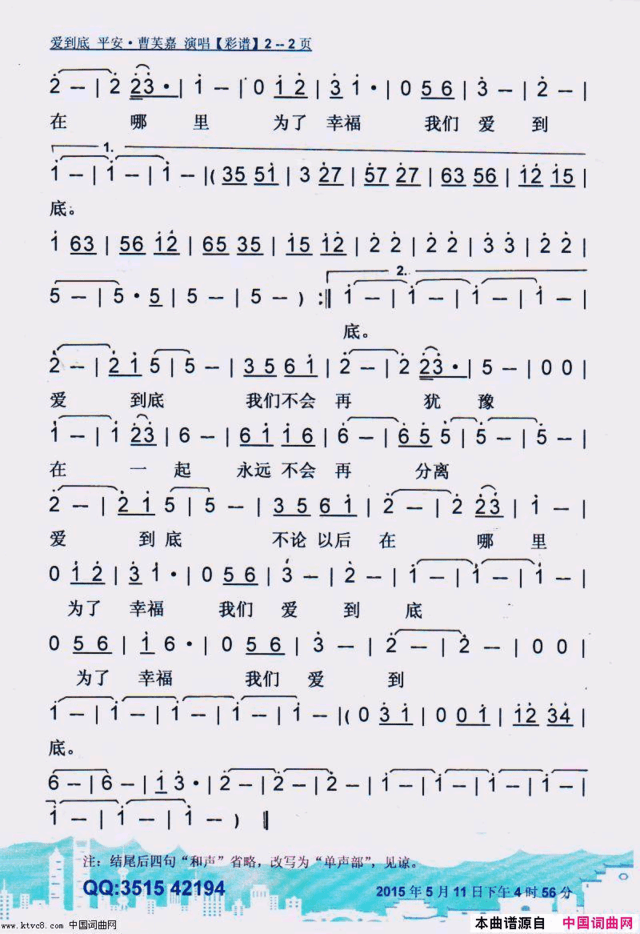 爱到底 平安·曹芙嘉 演唱【彩谱】2--2页
2 – | 2 23· | 1 – | 0 12 | 31· | 0 56 | 3 – | 2 – |
在 哪 里 为了 幸福 我们 爱 到
1.
1 – | 1 – | 1 – |( 35 51 | 3 27 | 57 27 | 63 56 | 12 15 |
底。
1 63 | 56 12 | 65 35 | 15 12 | 2 2 | 2 2 | 33 | 22 |
2.
5 – | 5·5 | 5 – | 5 – ) :‖ 1 – | 1 – | 1 – | 1 – |
底。
2 – | 21 5 | 5 – | 35 61 | 2 – | 2 23· | 5 – | 0 0 |
爱 到底 我们不会 再 犹 豫
1 – | 1 23 | 6 – | 61 16 | 6 – | 65 5 | 5 – | 5 – |
在 一 起 永远 不会 再 分离
2 – | 21 5 | 5 – | 35 61 | 2 – | 2 23 | 1 – |
爱 到 底 不论 以后 在 哪 里
0 12 | 31· | 0 56 | 3 – | 2 – | 1 – | 1 – | 1 – |
为了 幸福 我们 爱 到 底
0 56 | 16· | 0 56 | 3 – | 2 – | 2 – | 0 0 |
为了 幸福 我们 爱 到
1 – | 1 – | 1 – | 1 – |( 0 31 | 0 01 | 12 34 |
底。
6 – | 6 – | 13· | 2 – | 2 – | 1 – | 1 – | 1 – |
1 – | 1 – | 1 – ) ‖
注：结尾后四句“和声”省略，改写为“单声部”，见谅。
QQ:3515 42194
2015年5月11日下午4时56分
www.ktvc8.com 中国词曲网
本曲谱源自 中国词曲网